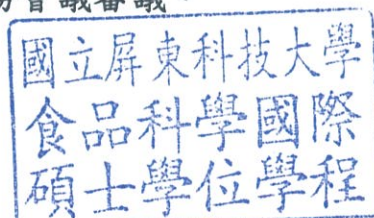 國立屏東科技大學
食品科學國際
碩士學位學程